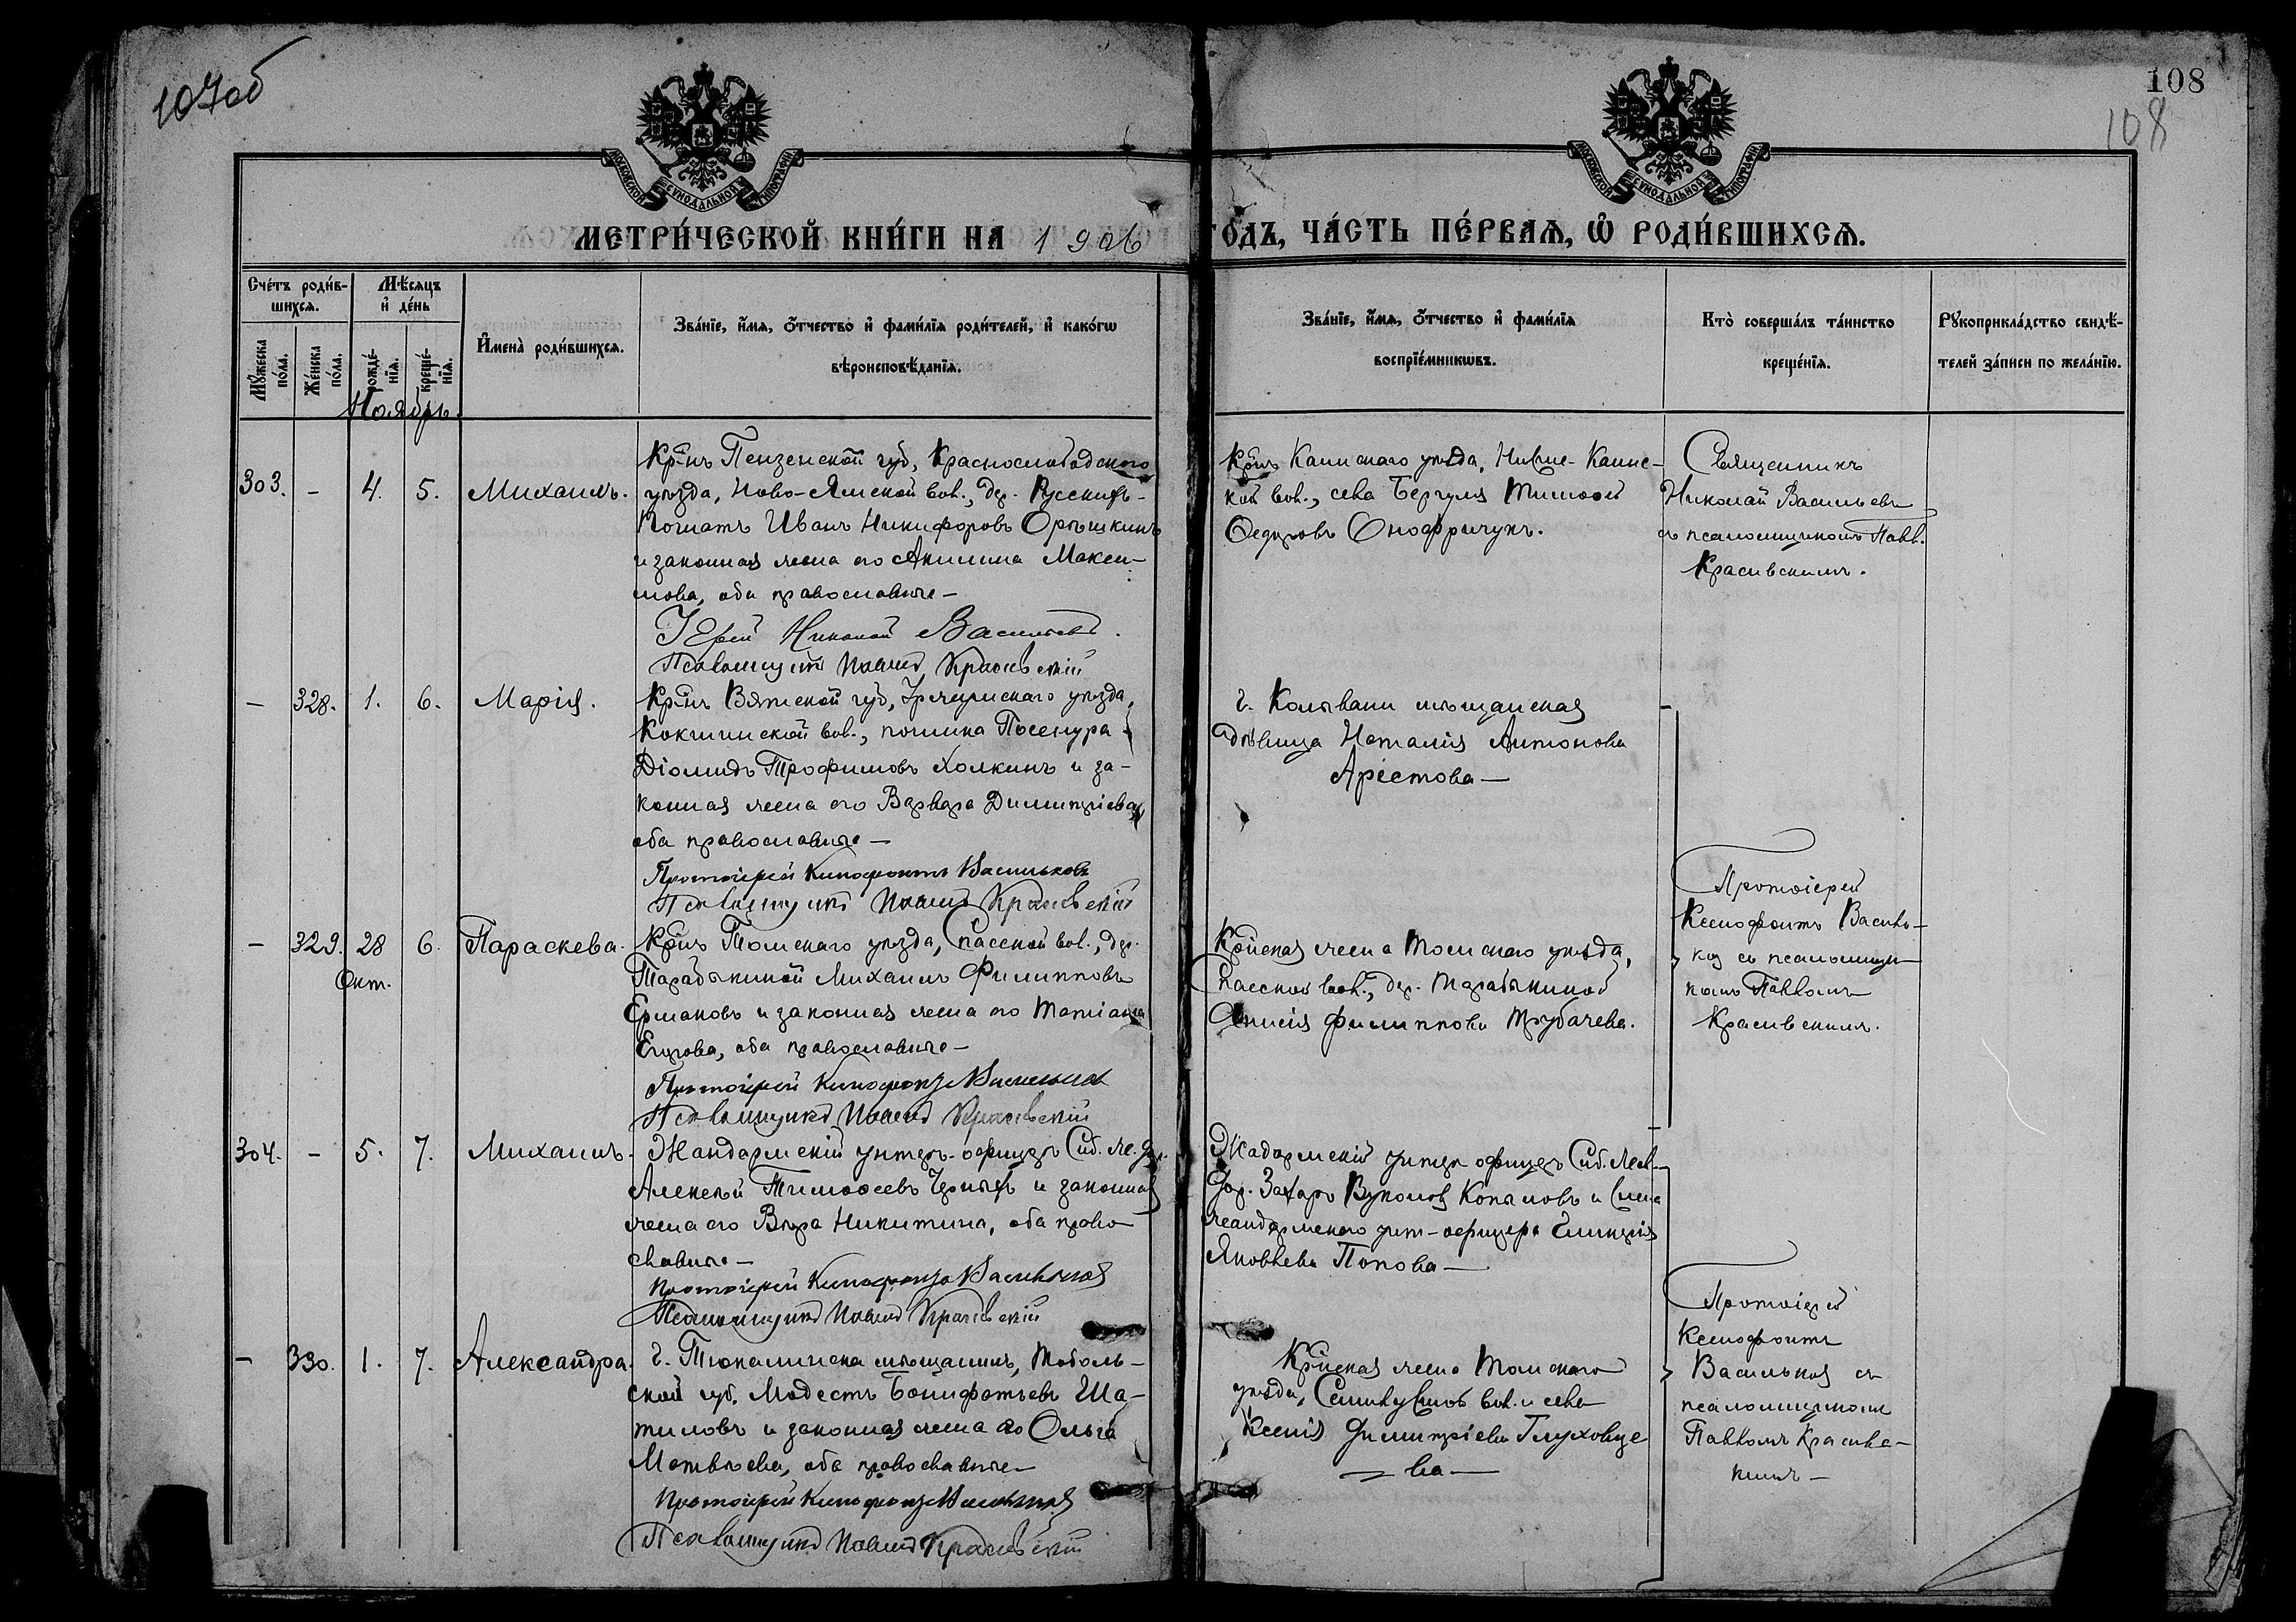 107об
108
108
МОСКОВСКОЙ СѴНОДАЛЬНОЙ ТИПОГРАФІИ
МОСКОВСКОЙ СѴНОДАЛЬНОЙ ТИПОГРАФІИ
МЕТРИ́ЧЕСКОЙ КНИ́ГИ НА 1906 ГО́ДЪ, ЧА́СТЬ ПЕ́РВАѦ, Ѽ РОДИ́ВШИХСѦ.
Сче́тъ роди́в-
шихсѧ.
Мѣ́сѧцъ
и҆ де́нь
Мꙋ́жеска по́ла.
Же́нска по́ла.
рожде́-
нїѧ.
креще́-
нїѧ.
И҆мена̀ роди́вшихсѧ.
Зва́нїе, и҆́мѧ, ѻ҆́тчество и҆ фами́лїѧ роди́телей, и҆ како́гѡ
вѣроисповѣ́данїѧ.
Зва́нїе, и҆́мѧ, ѻ҆́тчество и҆ фами́лїѧ
воспрїе́мникѡвъ.
Кто̀ соверша́лъ та́инство
креще́нїѧ.
Рꙋкоприкла́дство свидѣ́-
телей за́писи по жела́нїю.
Ноябрь.
303. – 4. 5. Михаилъ.
Кр-нъ Пензенской губ, Краснослободскаго
уѣзда, Ново-Ямской вол., дер. Русскихъ-
Пошатъ Иванъ Никифоровъ Орѣшкинъ
и законная жена его Акилина Макси-
мова, оба православные –
Іерей Николай Васильевъ.
Псаломщикъ Павелъ Красивскій
Кр-нъ Каинскаго уѣзда, Нижне-Каинс-
кой вол., села Бергуля Тимофей
Федоровъ Онофричукъ.
Священникъ
Николай Васильевъ
съ псаломщикомъ Павл.
Красивскимъ.
– 328. 1. 6. Марія.
Кр-нъ Вятской губ, Уржумскаго уѣзда,
Кокшинской вол., починка Посенура
Діомидъ Трофимовъ Холкинъ и за-
конная жена его Варвара Димитріева,
оба православные –
Протоіерей Ксенофонтъ Васильковъ
Псаломщикъ Павелъ Красивскій
г. Колывани мѣщанская
дѣвица Наталія Антонова
Арестова –
– 329. 28 6. Параскева.
Окт.
Кр-нъ Томскаго уѣзда, Спасской вол., дер.
Тарабыкиной Михаилъ Филипповъ
Ермаковъ и законная жена его Татіана
Егорова, оба православные –
Протоіерей Ксенофонтъ Васильковъ
Псаломщикъ Павелъ Красивскій
Кр-нская жена Томскаго уѣзда,
Спасской вол., дер. Тарабыкиной
Анисія Филиппова Трубачева.
Протоіерей
Ксенофонтъ Василь-
ковъ съ псаломщи-
комъ Павломъ
Красивскимъ.
304. – 5. 7. Михаилъ.
Жандармскій унтеръ-офицеръ Сиб. ж. дор.
Алексѣй Тимофеевъ Черныхъ и законная
жена его Вѣра Никитина, оба право-
славные –
Протоіерей Ксенофонтъ Васильковъ
Псаломщикъ Павелъ Красивскій
Жадармскій унтеръ офицеръ Сиб. жел.
дор. Захаръ Вуколовъ Копыловъ и жена
жандармскаго унт-офицера Гликерія
Яковлева Попова –
– 330. 1. 7. Александра.
г. Тюкалинска мѣщанинъ, Тоболь-
ской губ. Модестъ Бонифатьевъ Ша-
тиловъ и законная жена его Ольга
Матвѣева, оба православные –
Протоіерей Ксенофонтъ Васильковъ
Псаломщикъ Павелъ Красивскій
Кр-нская жена Томскаго
уѣзда, Семилужной вол. и села
Ксенія Димитріева Глуховце-
ва –
Протоіерей
Ксенофонтъ
Васильковъ съ
псаломщикомъ
Павломъ Красивс-
кимъ –